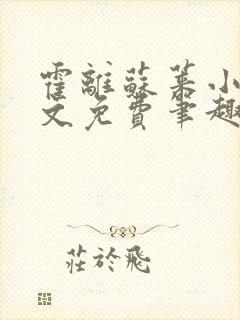 霍離蘇慕小
文免費筆趣
莊於飛